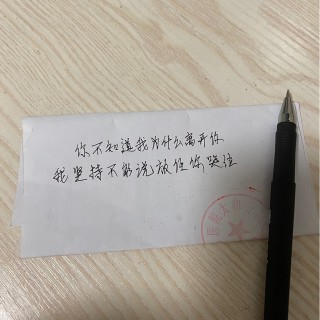 你不知道我为什么离开你
我坚持不能说放任你哭泣